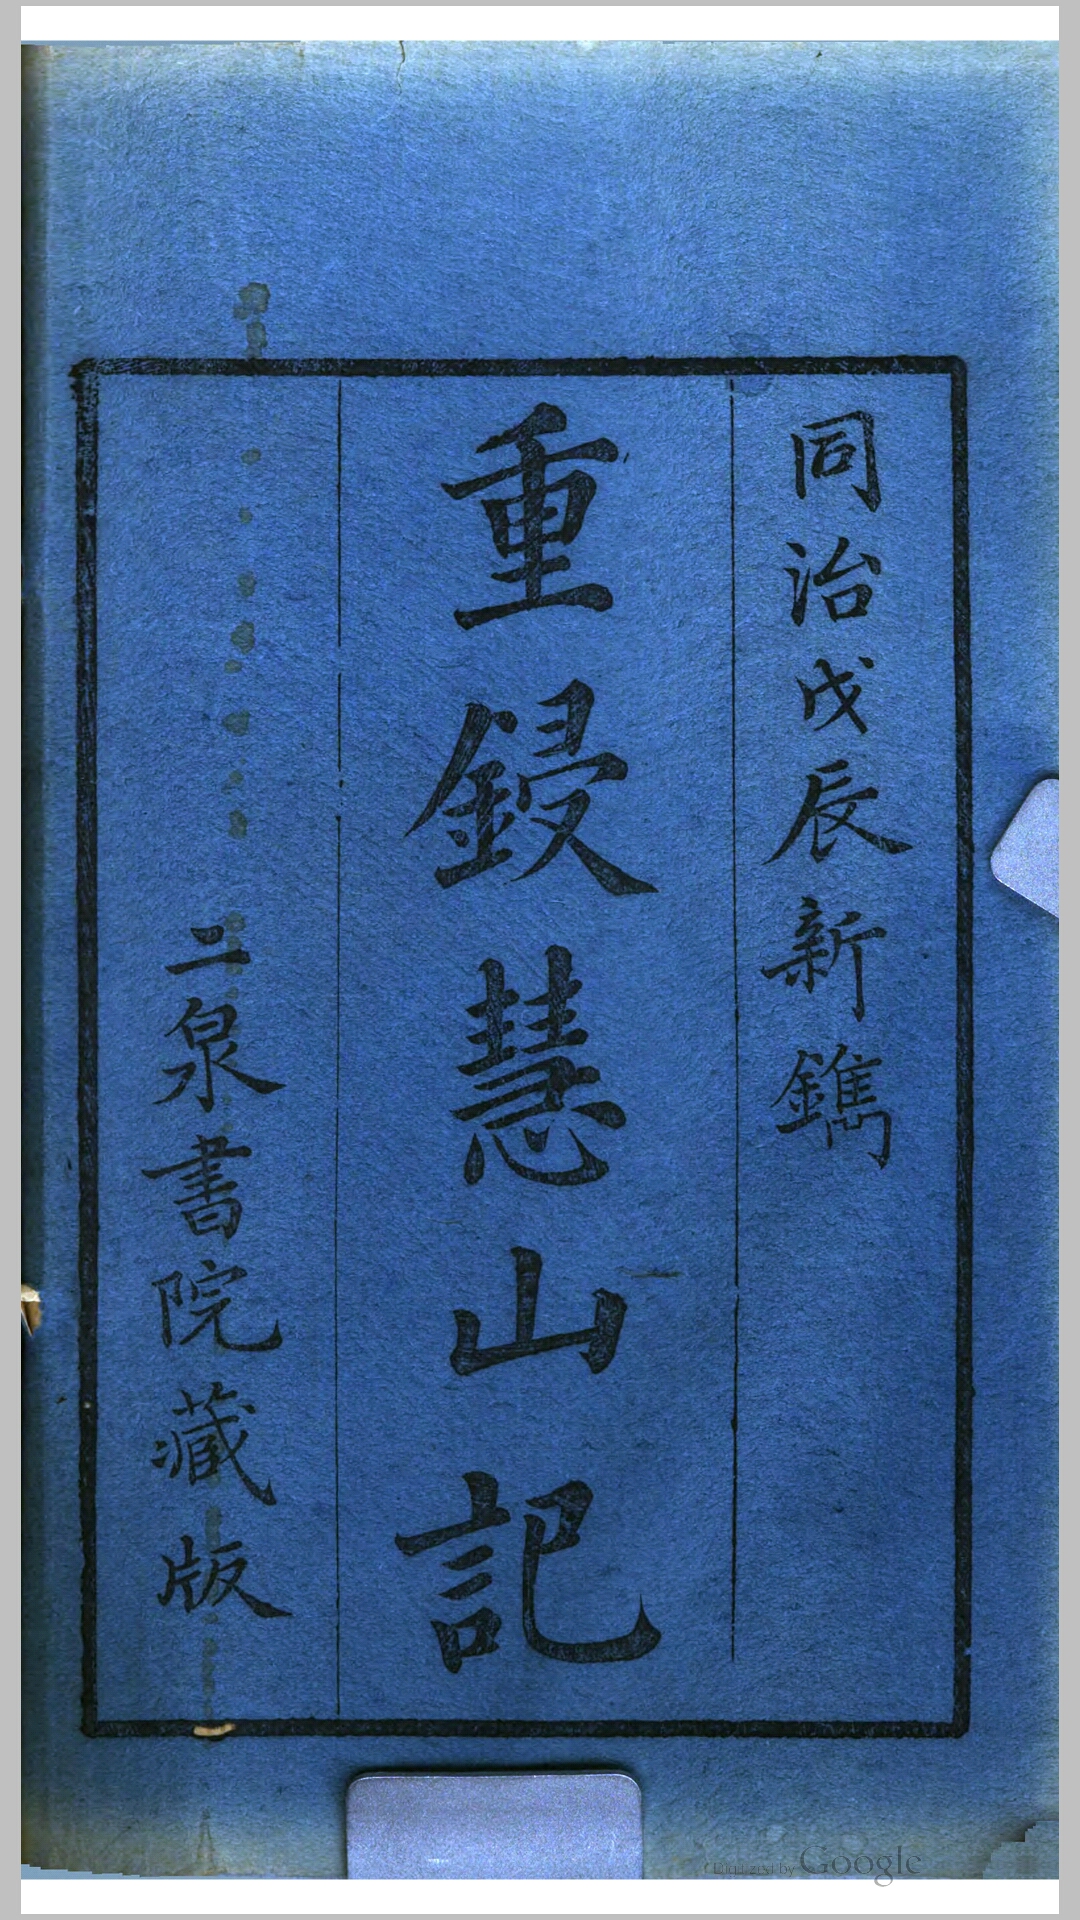 同治戊辰新鐫
重鋟慧山記
二泉書院藏版
Digitized by Google